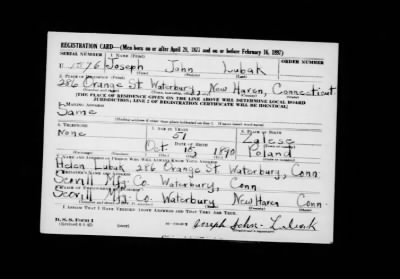 REGISTRATION CARD—(Men born on or after April 28, 1877 and on or before February 16, 1897)
SERIAL NUMBER 1. NAME (Print) ORDER NUMBER
U 1576 Joseph John Lubak
(First) (Middle) (Last)
2. PLACE OF RESIDENCE (Print)
286 Orange St. Waterbury, New Haven, Connecticut
[THE PLACE OF RESIDENCE GIVEN ON THE LINE ABOVE WILL DETERMINE LOCAL BOARD
JURISDICTION; LINE 2 OF REGISTRATION CERTIFICATE WILL BE IDENTICAL]
3. MAILING ADDRESS
Same
4. TELEPHONE 5. AGE IN YEARS 6. PLACE OF BIRTH
None 51 Zalese
DATE OF BIRTH
Oct 15 1890 Poland
7. NAME AND ADDRESS OF PERSON WHO WILL ALWAYS KNOW YOUR ADDRESS
Helen Lubak 286 Orange St. Waterbury, Conn
Scovill Mfg. Co. Waterbury, Conn
Scovill Mfg. Co. Waterbury New Haven Conn
I AFFIRM THAT I HAVE VERIFIED ABOVE ANSWERS AND THAT THEY ARE TRUE.
D. S. S. Form 1
Joseph John Lubak